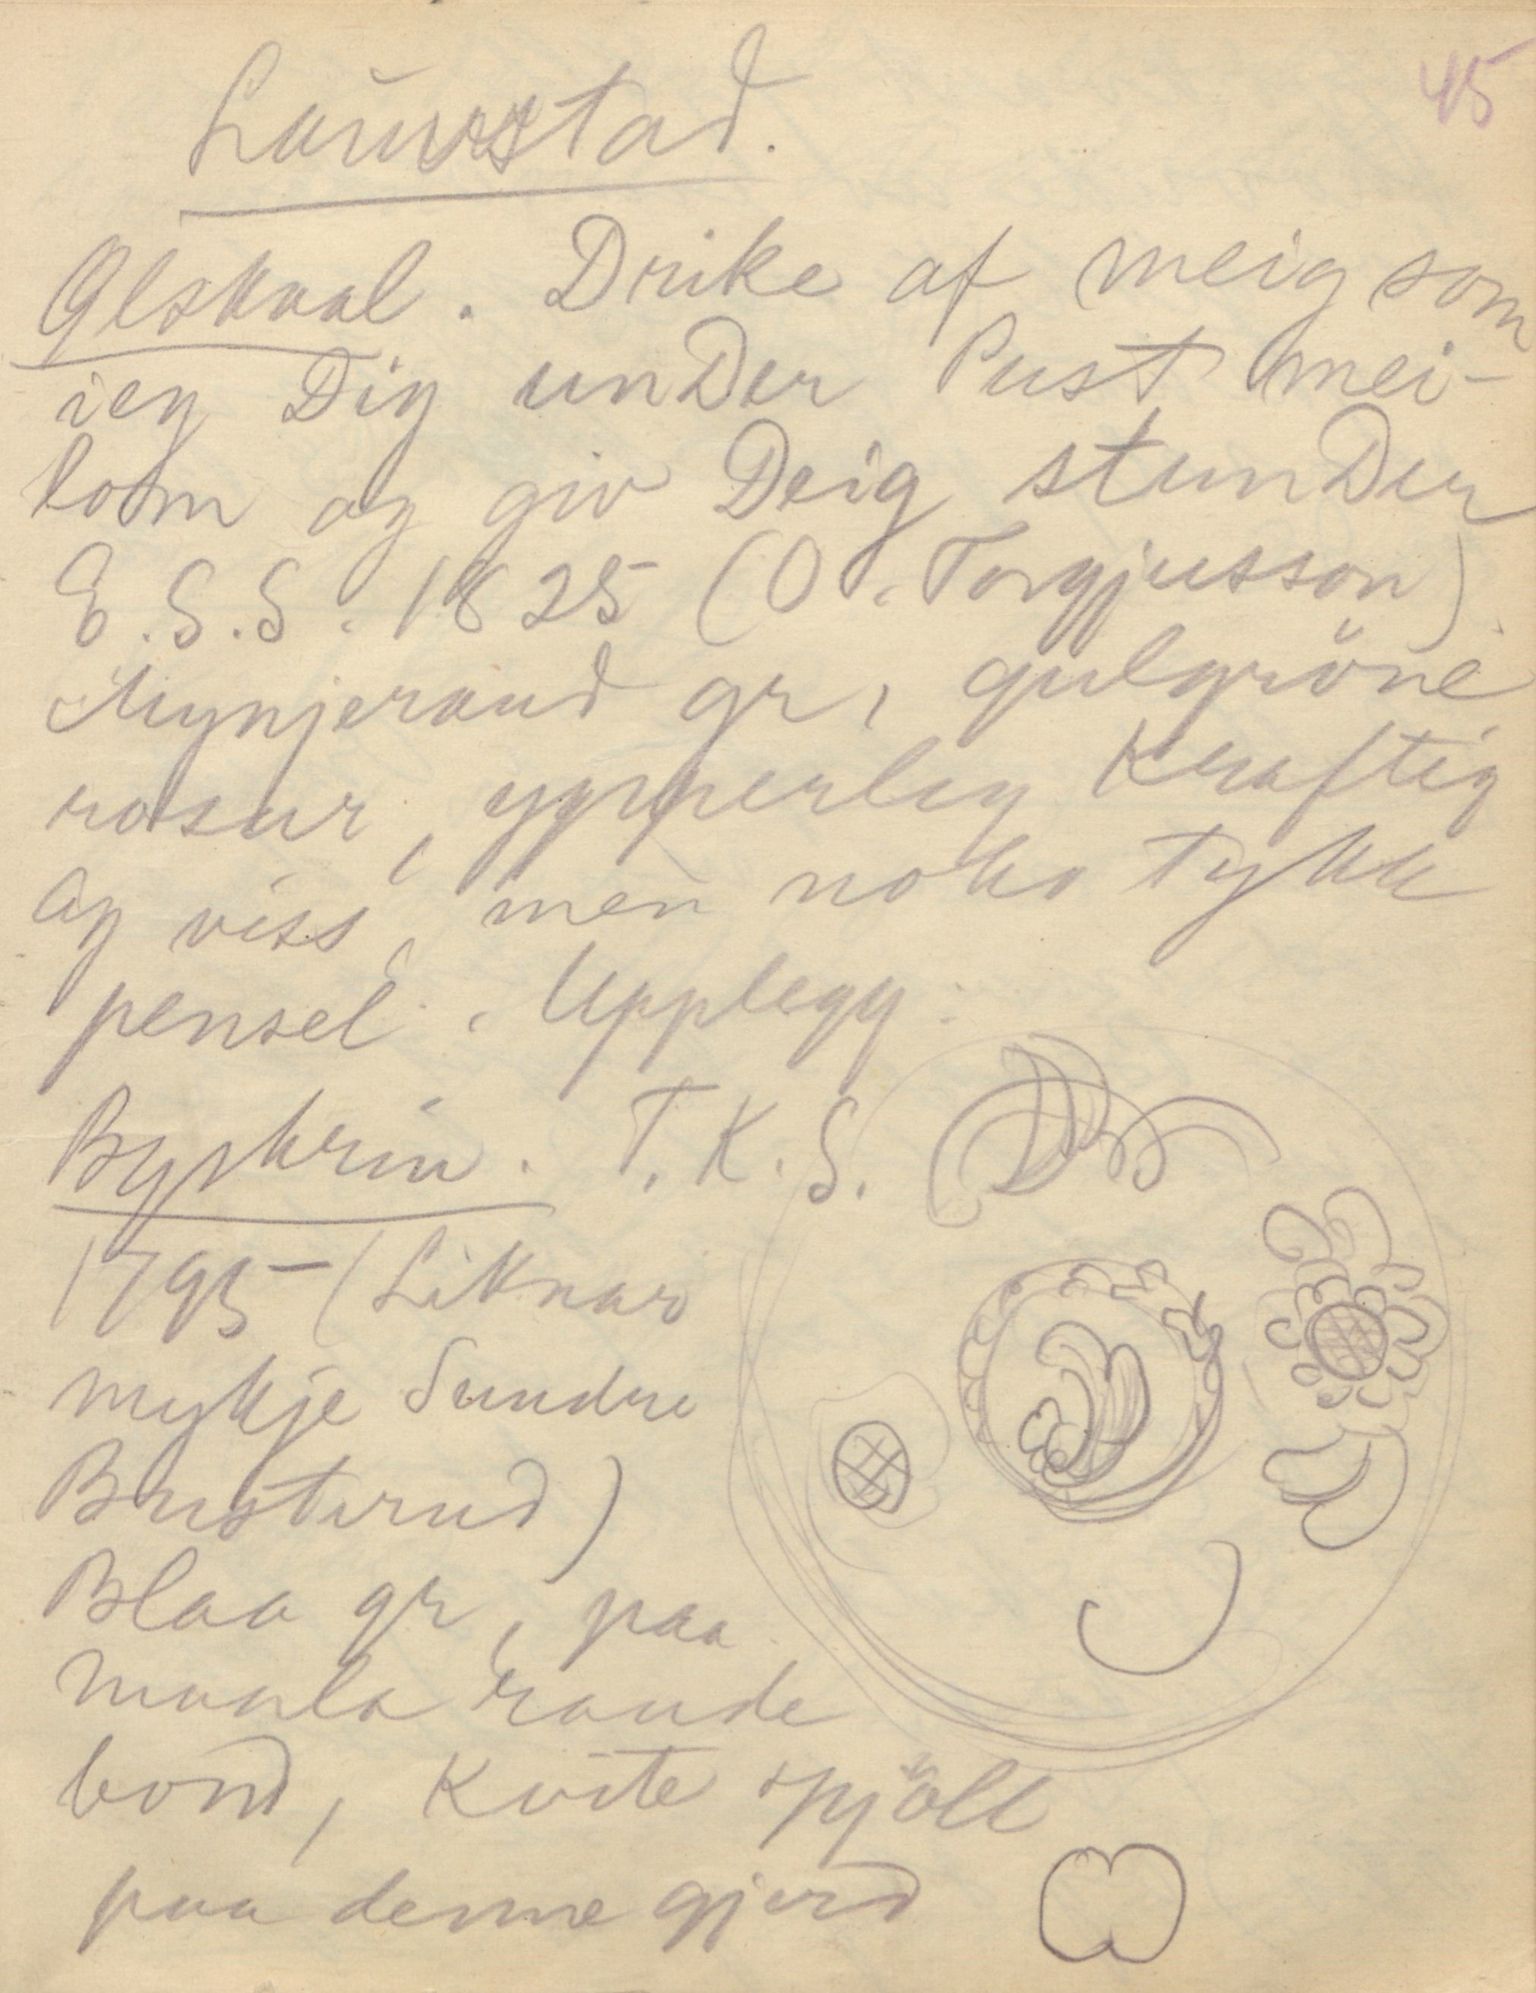 45
Laurstad.
Ølskaal. Drike af meig som
ieg Dig unDer Pust mei-
lom og giv Deig stunDer
E.S.S. 1825 (O. Torgjusson).
Mynjeraud gr, gulgröne
rosur, ypperleg kraftig
og viss, men noko tykk
pensel. Upplegg:
Byskrin. T.K.S.
1795 (Liknar
mykje Sundre
Busterud)
Blaa gr, paa
maala raude
bond, kvite spjöll
paa denne gjerd